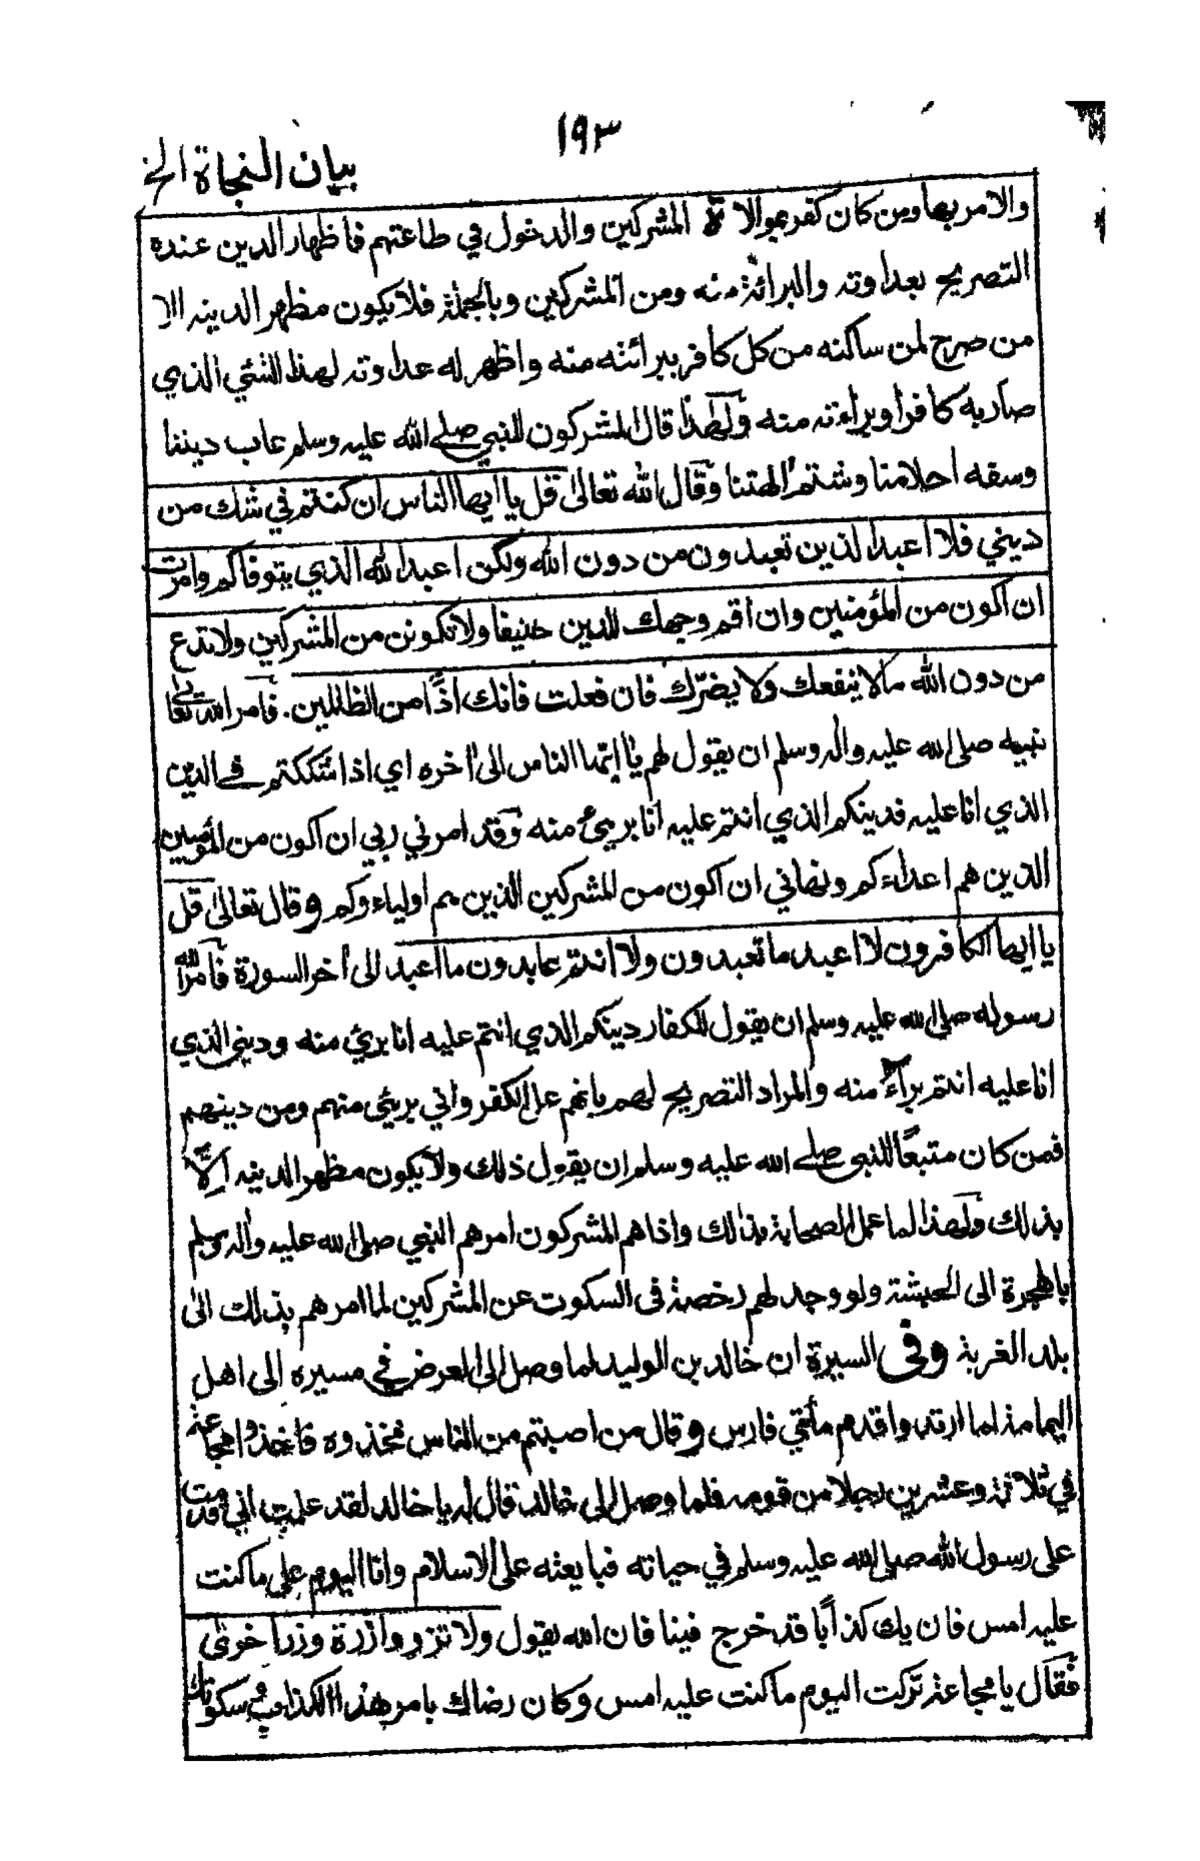 ١٩٣
بيان النجاة الخ
والامر بها ومن كان كفره بموالاة المشركين والدخول في طاعتهم فاظهار الدين عنده
التصريح بعداوته والبرائة منه ومن المشركين وبالجملة فلا يكون مظهر الدينه الا
من صرح لمن ساكنه من كل كافر ببرائته منه واظهر له عداوته لهذا الشئي الذي
صار به كافرا وبراءته منه ولهذا قال المشركون للنبي صلے الله عليه وسلم عاب ديننا
وسفه احلامنا وشتم الهتنا وقال الله تعالى قل يا ايها الناس ان كنتم في شك من
ديني فلا اعبد الذين تعبدون من دون الله ولكن اعبد الله الذي يتوفاكم وامرت
ان اكون من المؤمنين وان اقم وجهك للدين حنيفا ولا تكونن من المشركين ولا تدع
من دون الله مالا ينفعك ولا يضرّك فان فعلت فانك اذًا من الظالمين. فأمر الله تعالى
نبيه صلى الله عليه واله وسلم ان يقول لهم يا ايها الناس الى أخره اي اذا شككتم في الدين
الذي انا عليه فدينكم الذي انتم عليه انا بريئ منه وقد امرني ربي ان اكون من المؤمنين
الذين هم اعداءكم ونهاني ان اكون من المشركين الذين هم اولياءوكم وقال تعالى قل
يا ايها الكافرون لا اعبد ما تعبدون ولا انتم عابدون ما اعبد الى أخر السورة فأمر الله
رسوله صلى الله عليه وسلم ان يقول للكفار دينكم الذي انتم عليه انا بريئ منه وديني الذي
انا عليه انتم برآء منه والمراد التصريح لهم بانهم على الكفر واني بريئ منهم ومن دينهم
فمن كان متبعًا للنبي صلے الله عليه وسلم ان يقول ذلك ولا يكون مظهر الدينه اِلَّا
بذلك ولهذا لما عمل الصحابة بذلك واذاهم المشركون امرهم النبي صلى الله عليه واله وسلم
بالهجرة الى الحبشة ولو وجد لهم رخصة في السكوت عن المشركين لما امرهم بذلك الى
بلد الغربة وفي السيرة ان خالد بن الوليد لما وصل الى العرض في مسيره إلى اهل
اليمامة لما ارتدوا قدم مأتي فارس وقال من اصبتم من الناس فخذوه فاخذوا مجاعة
في ثلاثة وعشرين رجلا من قومه فلما وصل الى خالد قال له يا خالد لقد علمت اني قدمت
على رسول الله صلى الله عليه وسلم في حياته فبايعته على الاسلام وانا اليوم على ما كنت
عليه امس فان يك كذابًا قد خرج فينا فان الله يقول ولا تزر وازرة وزر اخرى
فقال يا مجاعة تركت اليوم ما كنت عليه امس وكان رضاك بامر هذا الكذاب وسكوتك